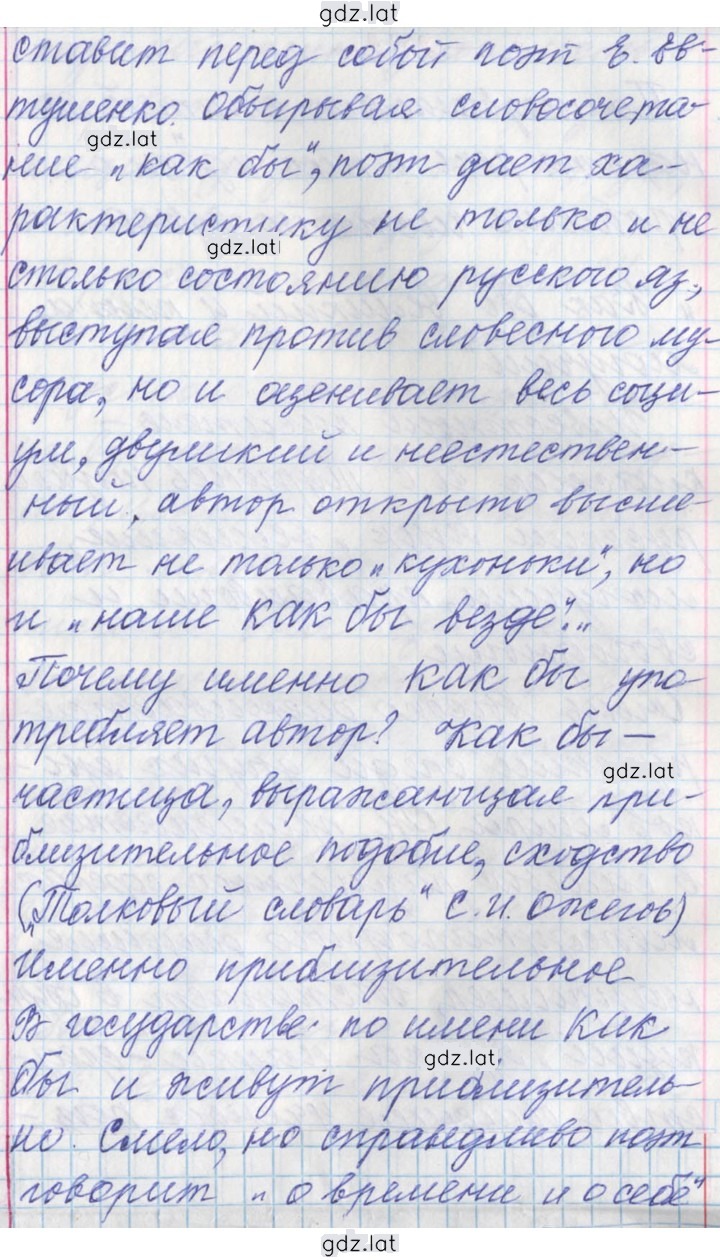 gdz.lat
ставит перед собой поэт Е. Ев-
тушенко. Обыгрывая словосочета-
gdz.lat
ние „как бы", поэт дает ха-
рактеристику не только и не
gdz.lat
столько состоянию русского яз.,
выступая против словесного му-
сора, но и оценивает весь соци-
ум, двуликий и неестествен-
ный. автор открыто высме-
ивает не только „кухоньки", но
и „наше как бы везде"..
Почему именно как бы упо-
требляет автор? Как бы —
gdz.lat
частица, выражающая при-
близительное подобие, сходство
(„Толковый словарь" С.И. Ожегов)
Именно приблизительное
В государстве по имени Как
gdz.lat
бы и живут приблизитель-
но. Смело, но справедливо поэт
говорит „о времени и о себе"
gdz.lat